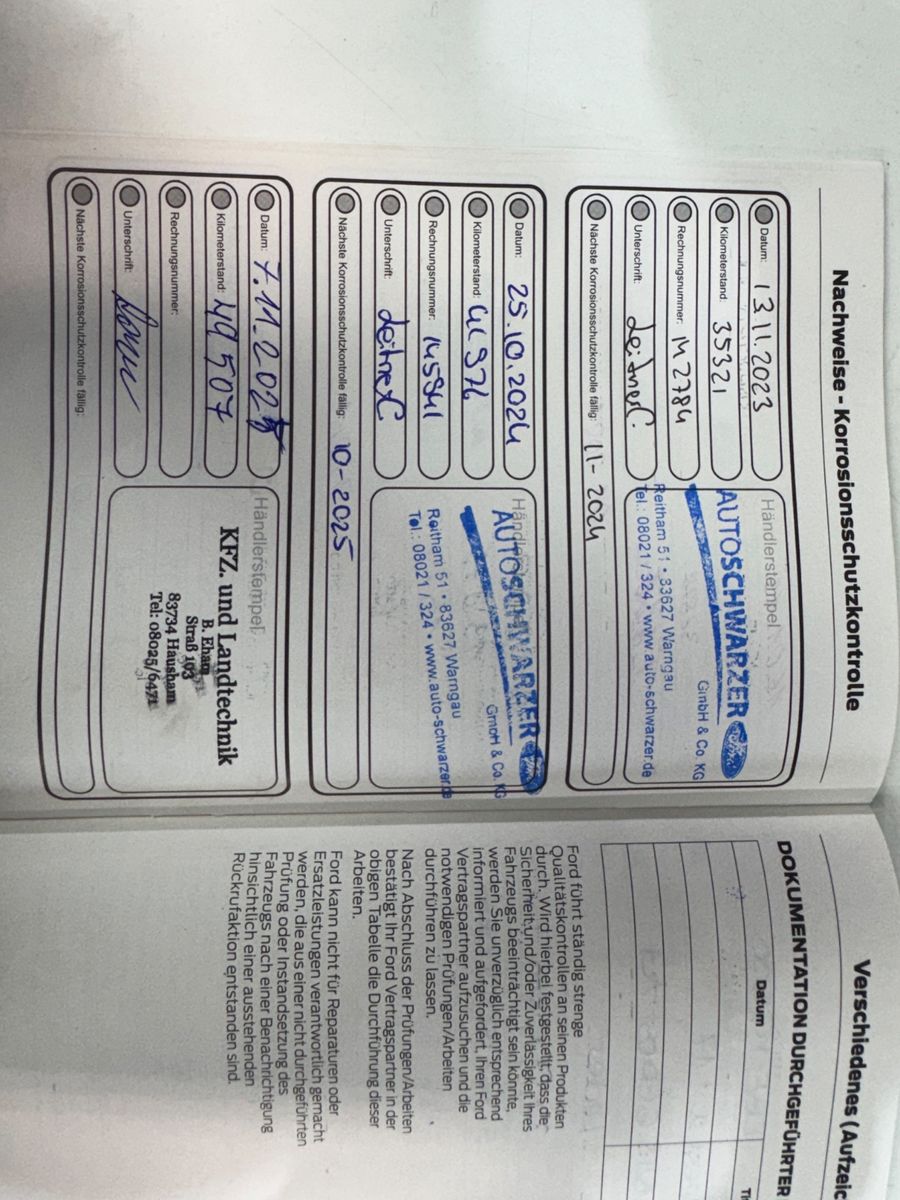 Nachweise - Korrosionsschutzkontrolle
Datum: 13.11.2023
Kilometerstand: 35321
Rechnungsnummer: M2784
Unterschrift: Leitner
Nächste Korrosionsschutzkontrolle fällig: 11-2024
Händlerstempel
AUTOSCHWARZER Ford
GmbH & Co. KG
Reitham 51 • 83627 Warngau
Tel.: 08021 / 324 • www.auto-schwarzer.de
Datum: 25.10.2024
Kilometerstand:
Rechnungsnummer:
Unterschrift: Leitner
Nächste Korrosionsschutzkontrolle fällig: 10-2025
Händlerstempel
AUTOSCHWARZER Ford
GmbH & Co. KG
Reitham 51 • 83627 Warngau
Tel.: 08021 / 324 • www.auto-schwarzer.de
Datum: 7.11.2025
Kilometerstand: 49507
Rechnungsnummer:
Unterschrift:
Nächste Korrosionsschutzkontrolle fällig:
Händlerstempel
KFZ. und Landtechnik
B. Eham
Straß 103
83734 Hausham
Tel: 08025/6471
Verschiedenes (Aufzeic
DOKUMENTATION DURCHGEFÜHRTER
Datum
Ford führt ständig strenge
Qualitätskontrollen an seinen Produkten
durch. Wird hierbei festgestellt, dass die
Sicherheit und/oder Zuverlässigkeit Ihres
Fahrzeugs beeinträchtigt sein könnte,
werden Sie unverzüglich entsprechend
informiert und aufgefordert, Ihren Ford
Vertragspartner aufzusuchen und die
notwendigen Prüfungen/Arbeiten
durchführen zu lassen.
Nach Abschluss der Prüfungen/Arbeiten
bestätigt Ihr Ford Vertragspartner in der
obigen Tabelle die Durchführung dieser
Arbeiten.
Ford kann nicht für Reparaturen oder
Ersatzleistungen verantwortlich gemacht
werden, die aus einer nicht durchgeführten
Prüfung oder Instandsetzung des
Fahrzeugs nach einer Benachrichtigung
hinsichtlich einer ausstehenden
Rückrufaktion entstanden sind.